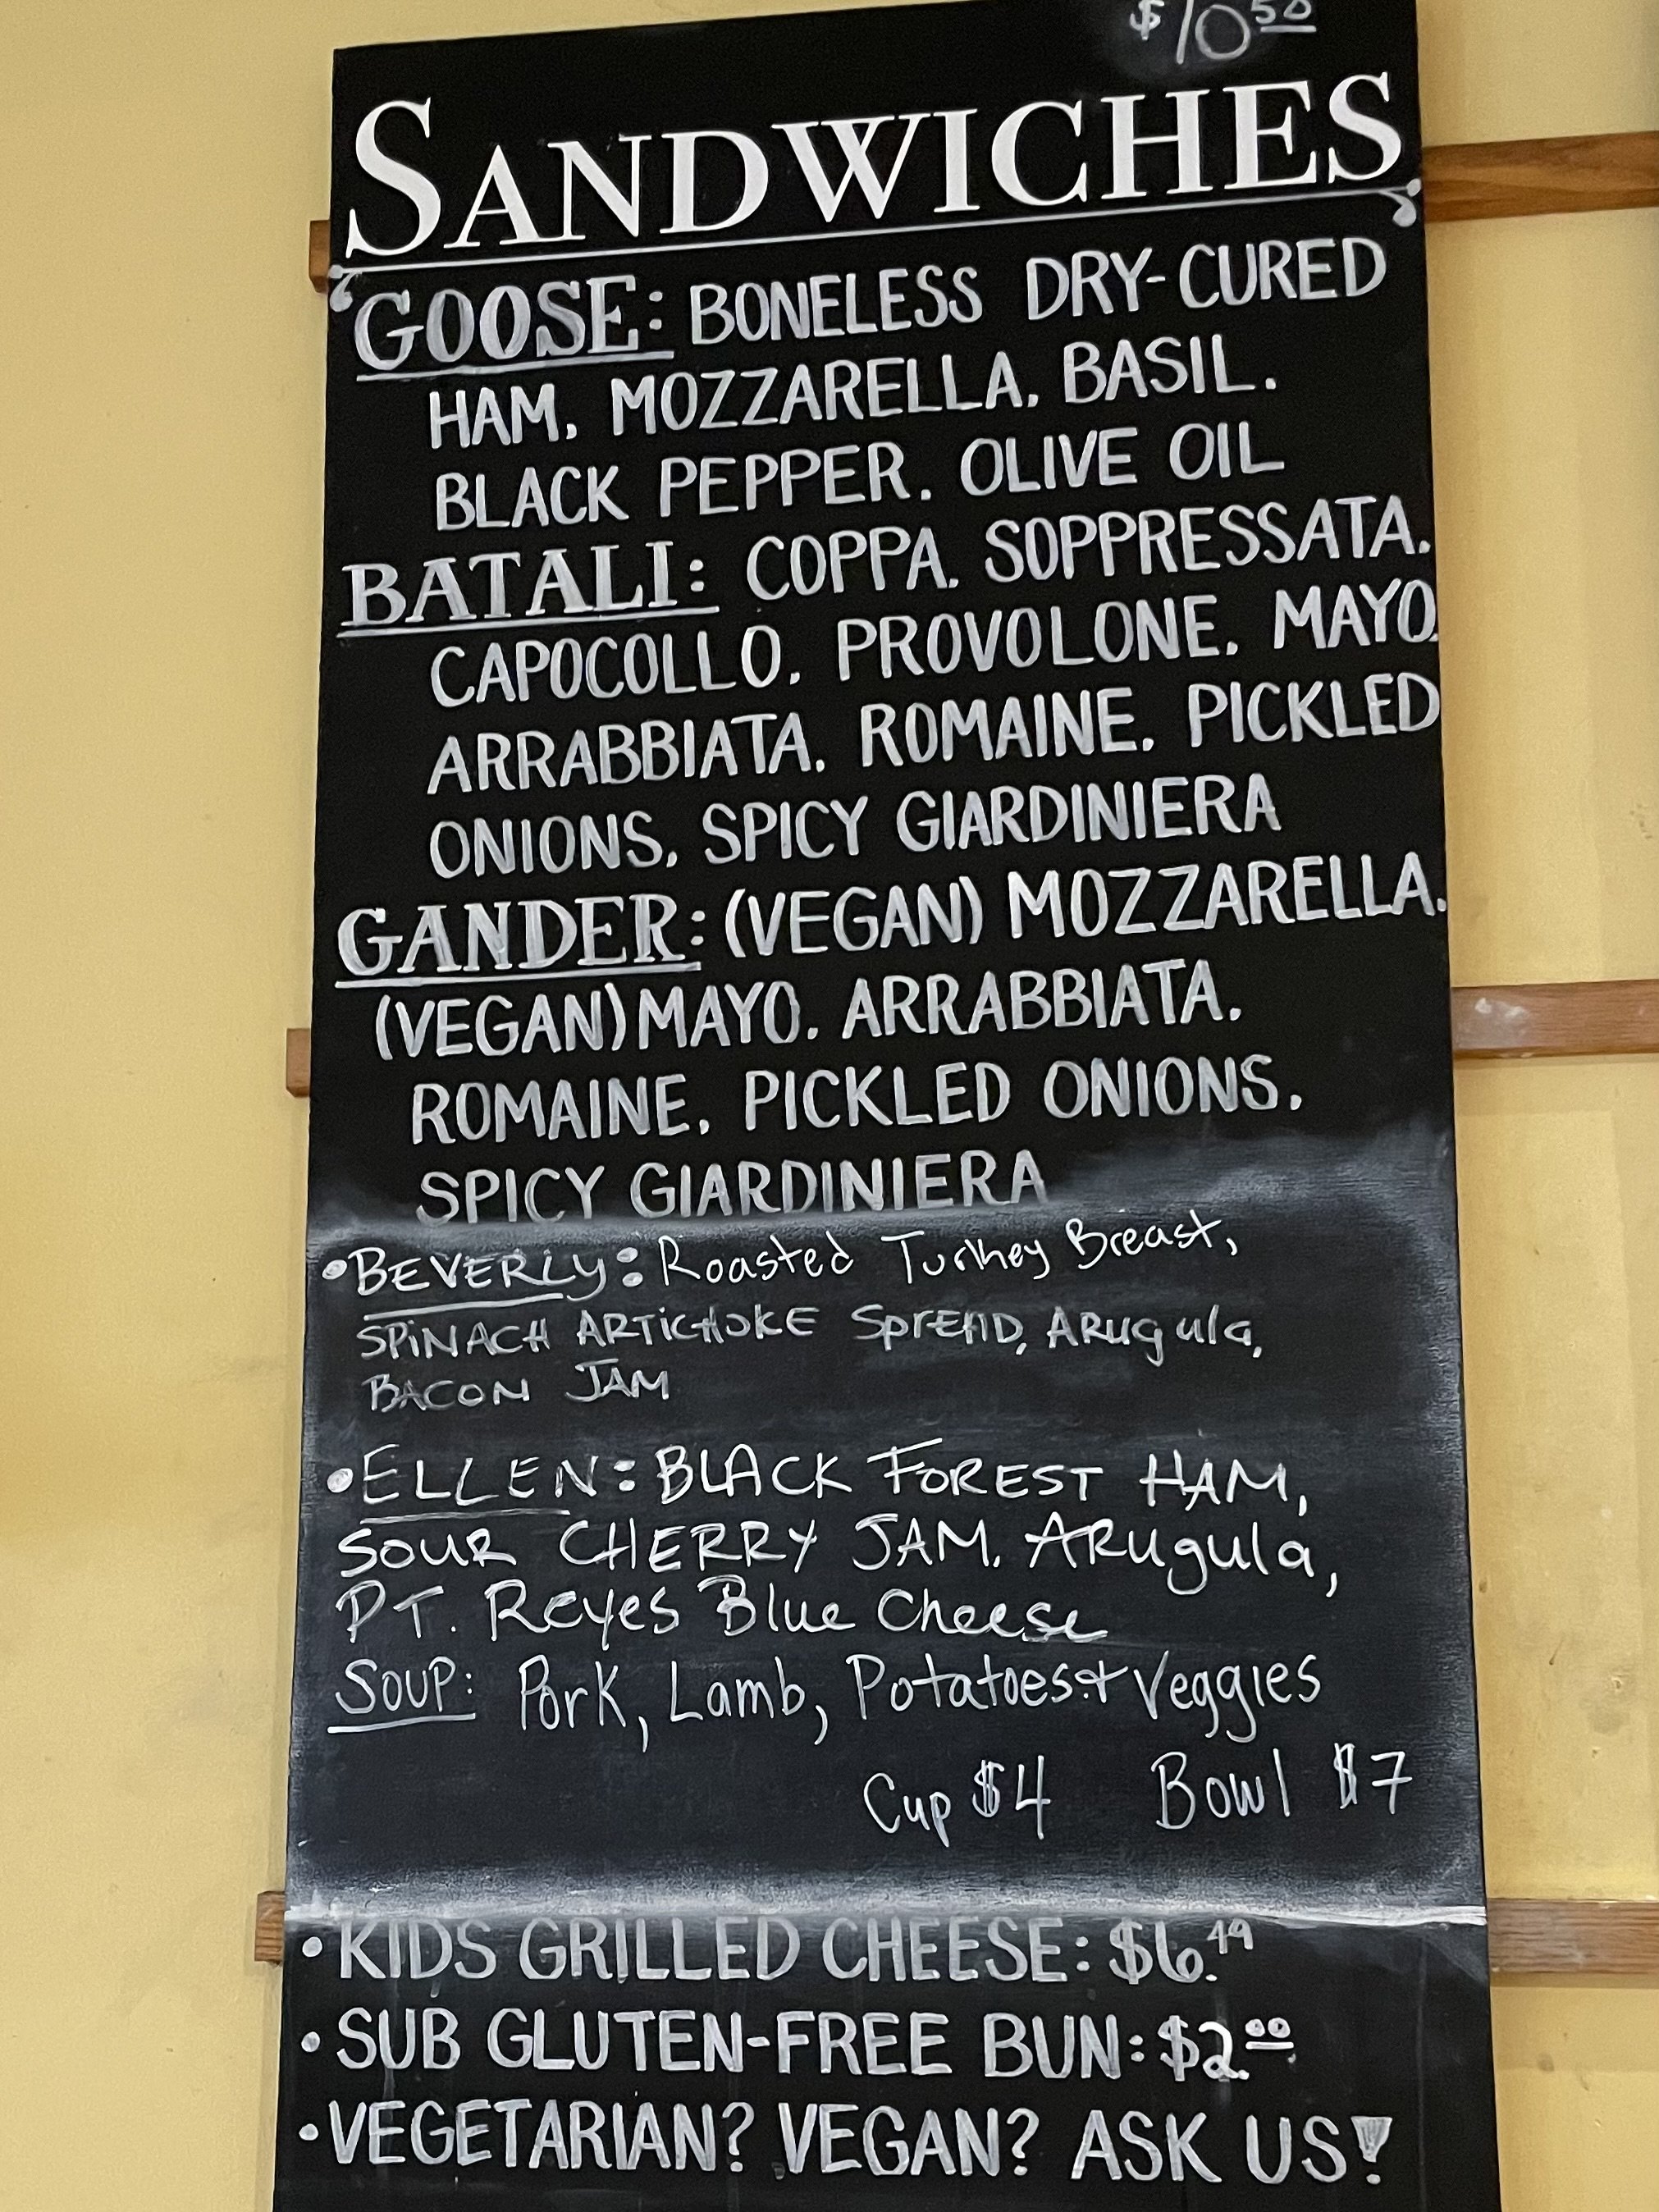 $10.50
SANDWICHES
GOOSE: BONELESS DRY-CURED
HAM. MOZZARELLA. BASIL.
BLACK PEPPER. OLIVE OIL
BATALI: COPPA. SOPPRESSATA.
CAPOCOLLO. PROVOLONE. MAYO.
ARRABBIATA. ROMAINE. PICKLED
ONIONS. SPICY GIARDINIERA
GANDER: (VEGAN) MOZZARELLA.
(VEGAN) MAYO. ARRABBIATA.
ROMAINE. PICKLED ONIONS.
SPICY GIARDINIERA
• BEVERLY: Roasted Turkey Breast,
SPINACH ARTICHOKE SpREAD, ARugula,
BACON JAM
• ELLEN: BLACK FOREST HAM,
SOUR CHERRY JAM. ARugula,
PT. Reyes Blue Cheese
SOUP: Pork, Lamb, Potatoes + Veggies
Cup $4 Bowl $7
• KIDS GRILLED CHEESE: $6.49
• SUB GLUTEN-FREE BUN: $2.00
• VEGETARIAN? VEGAN? ASK US!